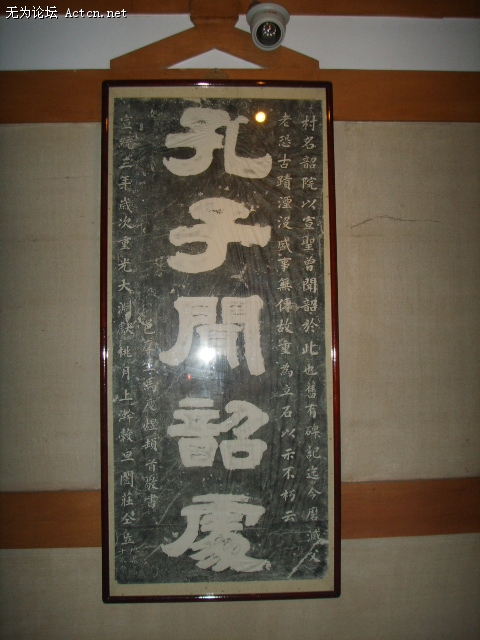 无为论坛 Actcn.net
村名韶院以宣聖曾聞韶於此也舊有碑紀迄今
老恐古蹟湮没盛事無傳故重為立石以示不朽云
孔子聞韶處
首敬書
宣統三年歲次重光大淵獻桃月上澣穀旦闔莊仝立